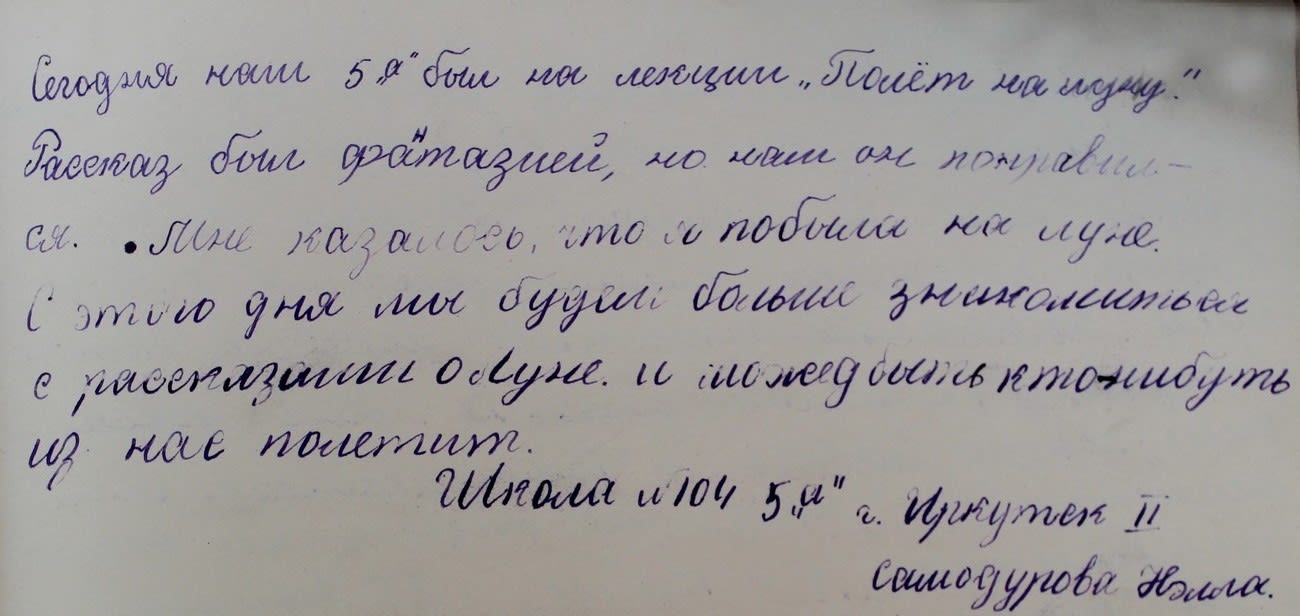 Сегодня наш 5 „а" был на лекции „Полёт на луну."
Рассказ был фантазией, но нам он понравил-
ся. . Мне казалось, что я побыла на луне.
С этого дня мы будем больше знакомиться
с рассказами о Луне. и можед быть кто-нибуть
из нас полетит.
Школа №104 5 „а" г. Иркутск II
Самодурова Нэлла.